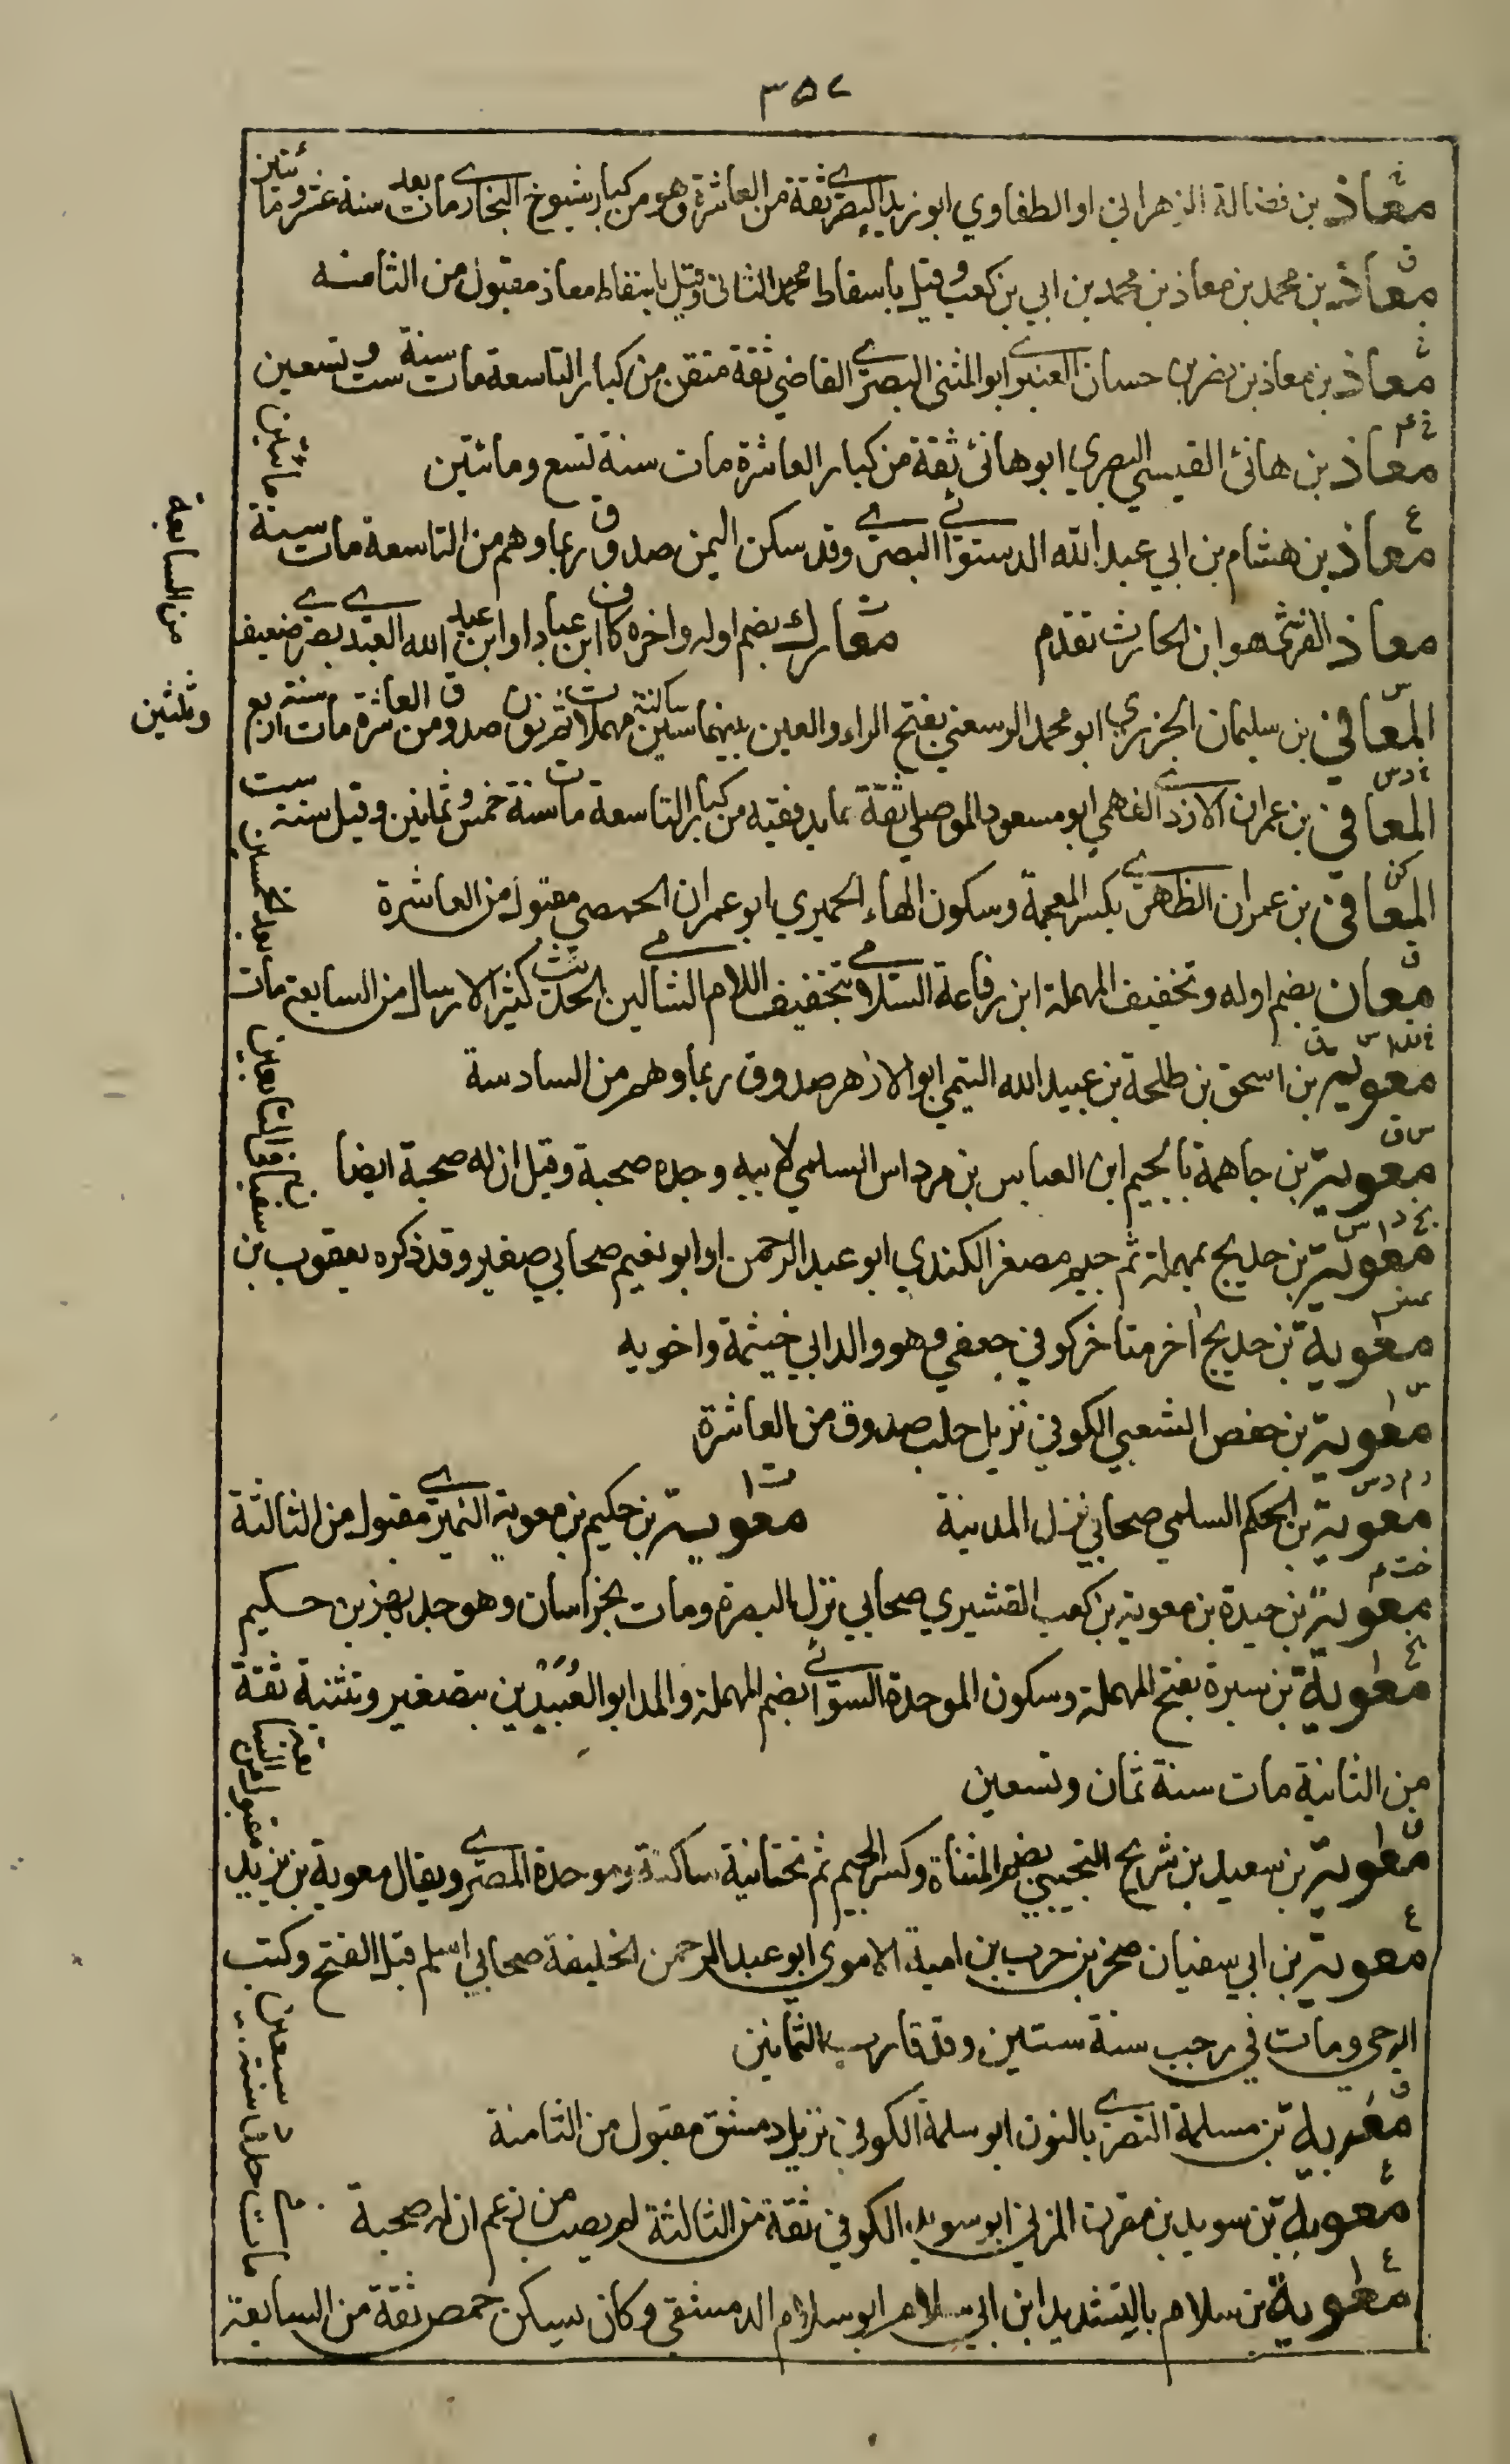 ٣٥٧
معاذ بن فضالة الزهراني او الطفاوي ابو زيد البصري ثقة من العاشرة وهو من كبار شيوخ البخاري مات بعد سنة عشر ومائتين
ق
معاذ بن محمد بن معاذ بن محمد بن ابي بن كعب وقيل باسقاط محمد الثاني وقيل باسقاط معاذ مقبول من الثامنه
ع
معاذ بن معاذ بن نصر بن حسان العنبري ابو المثنى البصري القاضي ثقة متقن من كبار التاسعة مات سنة ست وتسعين
معاذ بن هانئ القيسي البصري ابو هانئ ثقة من كبار العاشرة مات سنة تسع ومائتين
ع
معاذ بن هشام بن ابي عبد الله الدستوائي البصري وقد سكن اليمن صدوق ربما وهم من التاسعة مات سنة
مائتين
معاذ القرشي هو ابن الحارث تقدم معارك بضم اوله واخره كاف ابن عباد او ابن عبد الله العبدي بصري ضعيف
من السابعة
س
المعافى بن سليمان الجزري ابو محمد الرسعني بفتح الراء والعين بينهما سين مهملات ساكنة صدوق من العاشرة مات سنة اربع
وثلثين
خ د س
المعافى بن عمران الازدي الفهمي ابو مسعود الموصلي ثقة عابد فقيه من كبار التاسعة مات سنة خمس وثمانين وقيل سنة ست
كن
المعافى بن عمران الظهري بكسر المعجمة وسكون الهاء الحميري ابو عمران الحمصي مقبول من العاشرة
ق
معان بضم اوله وتخفيف المهملة ابن رفاعة السلامي بتخفيف اللام الشامي لين الحديث كثير الارسال من السابعة مات
بعد الخمسين
معوية بن اسحق بن طلحة بن عبيد الله التيمي ابو الازهر صدوق ربما وهم من السادسة
س ق
معوية بن جاهمة بالجيم ابن العباس بن مرداس السلمي لابيه وجده صحبة وقيل ان له صحبة ايضا
بخ د س
معوية بن حديج بمهملة ثم جيم مصغر الكندي ابو عبد الرحمن او ابو نعيم صحابي صغير وقد ذكره يعقوب بن
سفيان في التابعين
معوية بن حديج اخر متأخر كوفي جعفي وهو والد ابي خيثمة واخويه
س
معوية بن حفص الشعبي الكوفي نزيل حلب صدوق من العاشرة
ر م د س
معوية بن الحكم السلمي صحابي نزل المدينة معوية بن حكيم بن معوية النميري مقبول من الثالثة
معوية بن حيدة بن معوية بن كعب القشيري صحابي نزل البصرة ومات بخراسان وهو جد بهز بن حكيم
بخ
معوية بن سبرة بفتح المهملة وسكون الموحدة السوائي بضم المهملة والمد ابو العبيدين بتصغير وتثنية ثقة
من الثانية مات سنة ثمان وتسعين
معوية بن سعيد بن شريح التجيبي بضم المثناة وكسر الجيم ثم تحتانية ساكنة وموحدة المصري ويقال معوية بن يزيد
مقبول من السابعة
ع
معوية بن ابي سفيان صخر بن حرب بن امية الاموي ابو عبد الرحمن الخليفة صحابي اسلم قبل الفتح وكتب
الوحي ومات في رجب سنة ستين وقد قارب الثمانين
ق
معوية بن سلمة النصري بالنون ابو سلمة الكوفي نزيل دمشق مقبول من الثامنة
ع
معوية بن سويد بن مقرن المزني ابو سويد الكوفي ثقة من الثالثة لم يصب من زعم ان له صحبة
ع
معوية بن سلام بالتشديد ابن ابي سلام ابو سلام الدمشقي وكان يسكن حمص ثقة من السابعة
مات حدود سنة سبعين